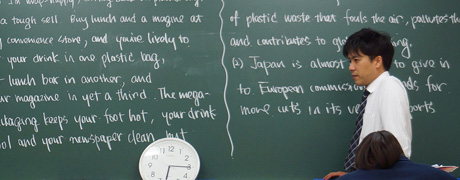 a tough sell. Buy lunch and a magazine at
convenience store, and you're likely to
your drink in one plastic bag,
lunch box in another, and
ur magazine in yet a third. The mega-
ckaging keeps your foot hot, your drink
ol and your newspaper clean, but
of plastic waste that fouls the air, pollutes th
and contributes to
(2) Japan is almost to give in
to European ds for
more cuts in its ports
12
3
6